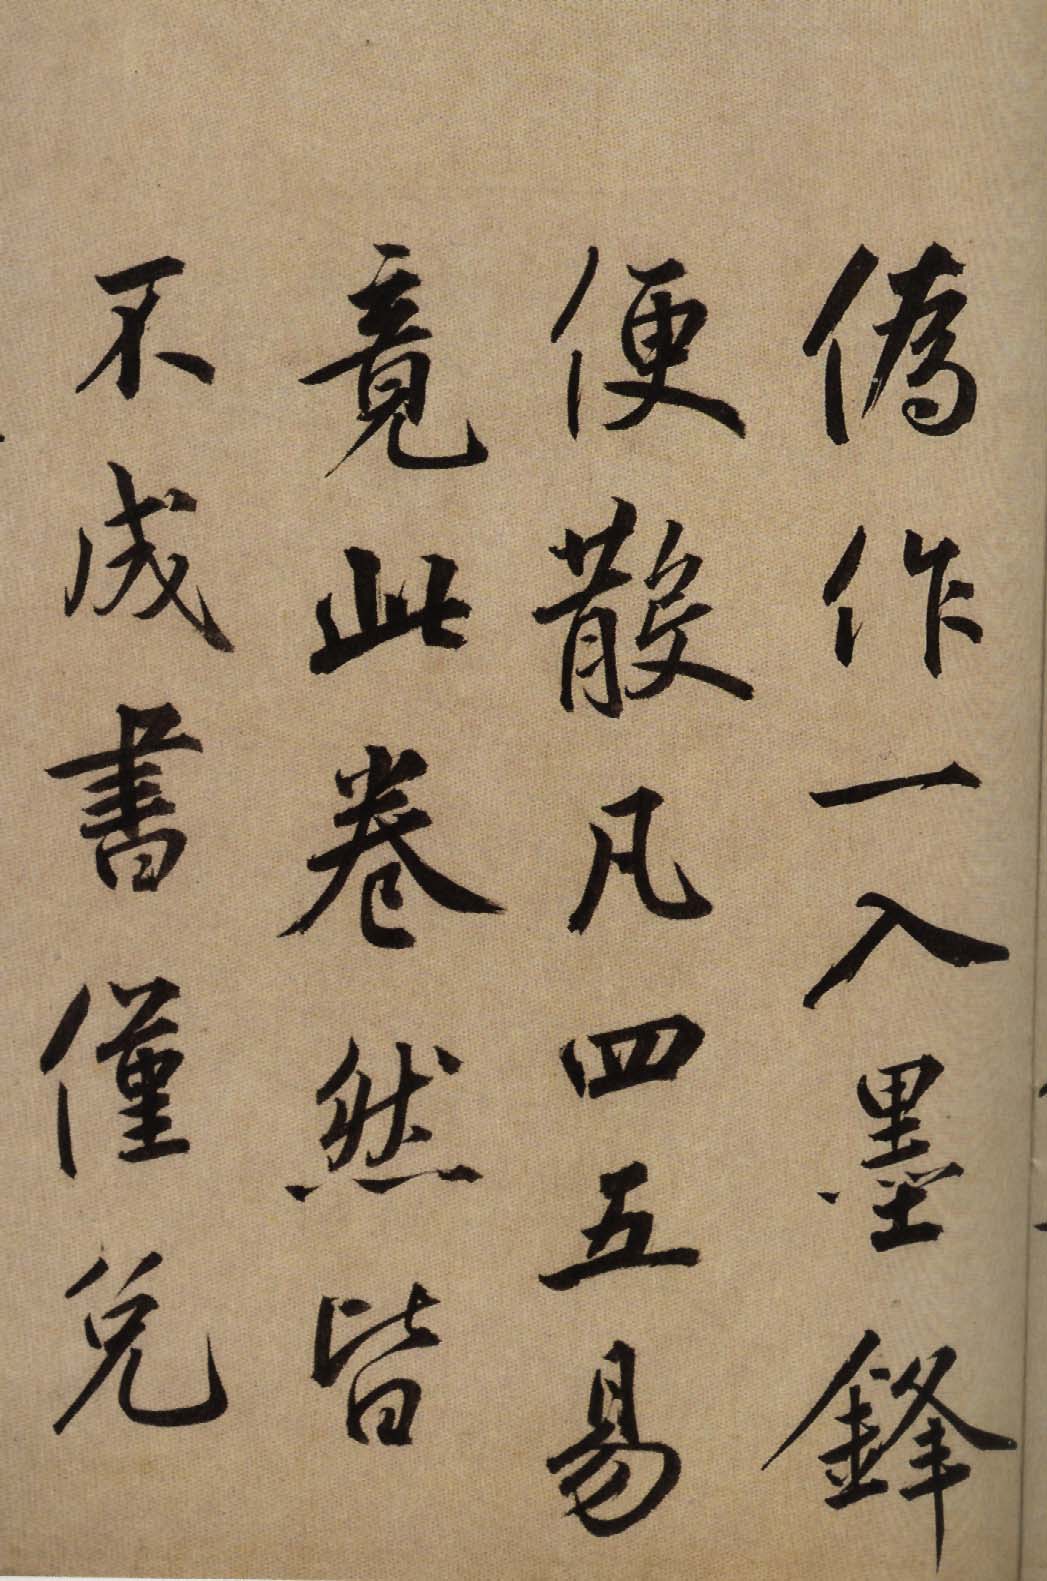 偽作一入墨鋒
便散凡四五易
竟此卷然皆
不成書僅免